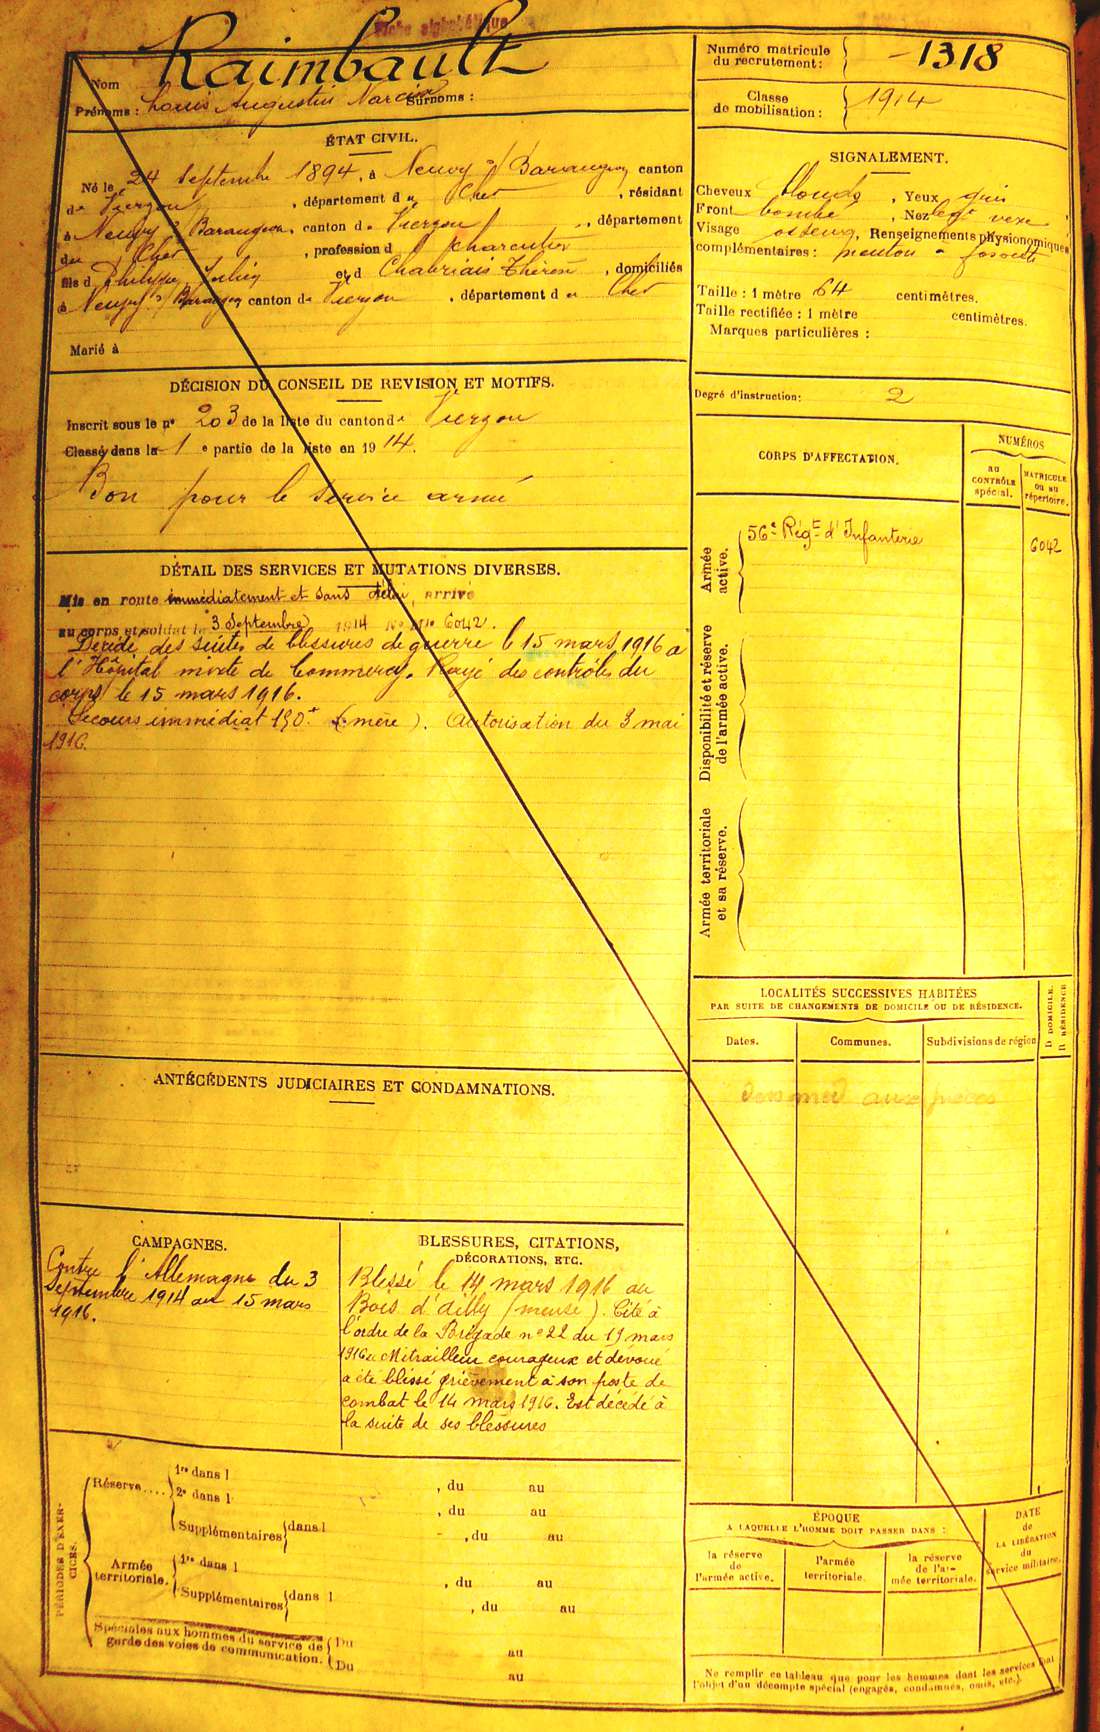 Fiche alphabétique
Nom Raimbault
Prénoms : Louis Augustin Narcisse Surnoms :
Numéro matricule du recrutement : 1318
Classe de mobilisation : 1914
ÉTAT CIVIL.
Né le 24 Septembre 1894, à Neuvy s/ Barangeon canton
de Vierzon, département du Cher, résidant
à Neuvy s/ Barangeon, canton de Vierzon, département
du Cher, profession d charcutier
fils d Philippe Julien et d Chabriais Thérèse, domiciliés
à Neuvy s/ Barangeon canton de Vierzon, département d u Cher
Marié à
DÉCISION DU CONSEIL DE REVISION ET MOTIFS.
Inscrit sous le nº 203 de la liste du canton de Vierzon
Classé dans la 1e partie de la liste en 1914.
Bon pour le service armé
DÉTAIL DES SERVICES ET MUTATIONS DIVERSES.
Mis en route immédiatement et sans délai, arrivé
au corps et soldat le 3 Septembre 1914 No Mle 6042.
Décédé des suites de blessures de guerre le 15 mars 1916 à
l'Hôpital mixte de Commercy. Rayé des contrôles du
corps le 15 mars 1916.
Secours immédiat 150f (mère). Autorisation du 3 mai
1916.
ANTÉCÉDENTS JUDICIAIRES ET CONDAMNATIONS.
CAMPAGNES.
Contre l'Allemagne du 3
Septembre 1914 au 15 mars
1916.
BLESSURES, CITATIONS,
DÉCORATIONS, ETC.
Blessé le 14 mars 1916 au
Bois d'ailly (meuse). Cité à
l'ordre de la Brigade nº 22 du 19 mars
1916 « Mitrailleur courageux et dévoué
a été blessé grièvement à son poste de
combat le 14 mars 1916. Est décédé à
la suite de ses blessures
PÉRIODES D'EXERCICES.
Réserve....
1re dans l , du au
2e dans l , du au
Supplémentaires dans l , du au
Armée territoriale.
1re dans l , du au
Supplémentaires dans l , du au
Spéciales aux hommes du service de garde des voies de communication.
Du au
Du au
SIGNALEMENT.
Cheveux blonds, Yeux gris
Front bombé, Nez légt vexe
Visage osseux, Renseignements physionomiques
complémentaires : menton à fossette
Taille : 1 mètre 64 centimètres.
Taille rectifiée : 1 mètre centimètres.
Marques particulières :
Degré d'instruction : 2
CORPS D'AFFECTATION.
NUMÉROS
au CONTRÔLE spécial.
MATRICULE ou au répertoire.
Armée active.
56e Régt d'Infanterie 6042
Disponibilité et réserve de l'armée active.
Armée territoriale et sa réserve.
LOCALITÉS SUCCESSIVES HABITÉES
PAR SUITE DE CHANGEMENTS DE DOMICILE OU DE RÉSIDENCE.
Dates.
Communes.
Subdivisions de région
D DOMICILE.
R RÉSIDENCE
aux pièces
ÉPOQUE
A LAQUELLE L'HOMME DOIT PASSER DANS :
la réserve de l'armée active.
l'armée territoriale.
la réserve de l'armée territoriale.
DATE de LA LIBÉRATION du service militaire.
Ne remplir ce tableau que pour les hommes dont les services font
l'objet d'un décompte spécial (engagés, condamnés, omis, etc.).